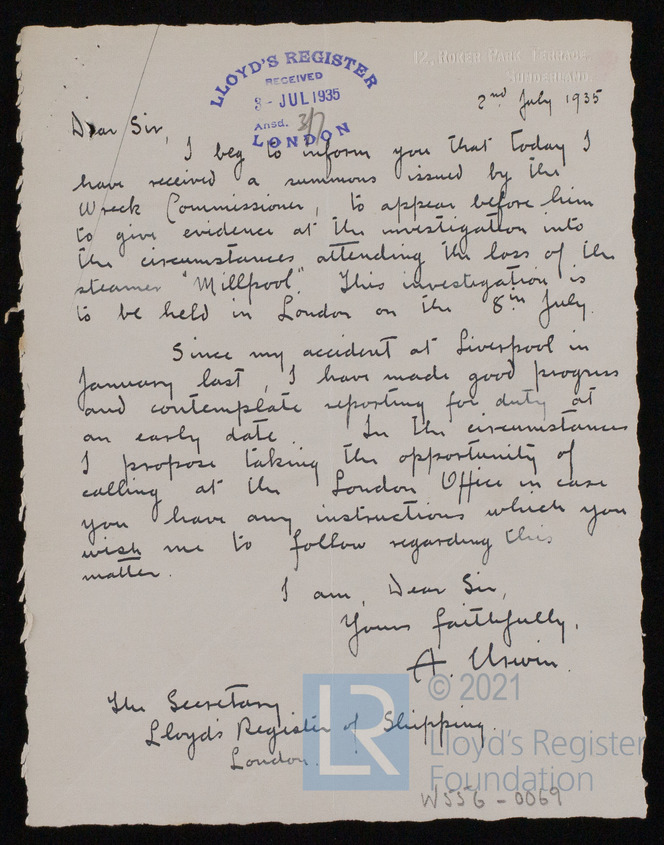 12, ROKER PARK TERRACE,
SUNDERLAND.
LLOYD'S REGISTER
RECEIVED
3 - JUL 1935
Ansd. 3/7
LONDON
2nd July 1935
Dear Sir,
I beg to inform you that today I
have received a summons issued by the
Wreck Commissioner, to appear before him
to give evidence at the investigation into
the circumstances attending the loss of the
steamer "Millpool". This investigation is
to be held in London on the 8th July.
Since my accident at Liverpool in
January last, I have made good progress
and contemplate reporting for duty at
an early date. In the circumstances
I propose taking the opportunity of
calling at the London Office in case
you have any instructions which you
wish me to follow regarding this
matter.
I am, Dear Sir,
Yours faithfully,
A. Urwin.
The Secretary
Lloyd's Register of Shipping.
London.
LR
© 2021
Lloyd's Register
Foundation
W556-0069